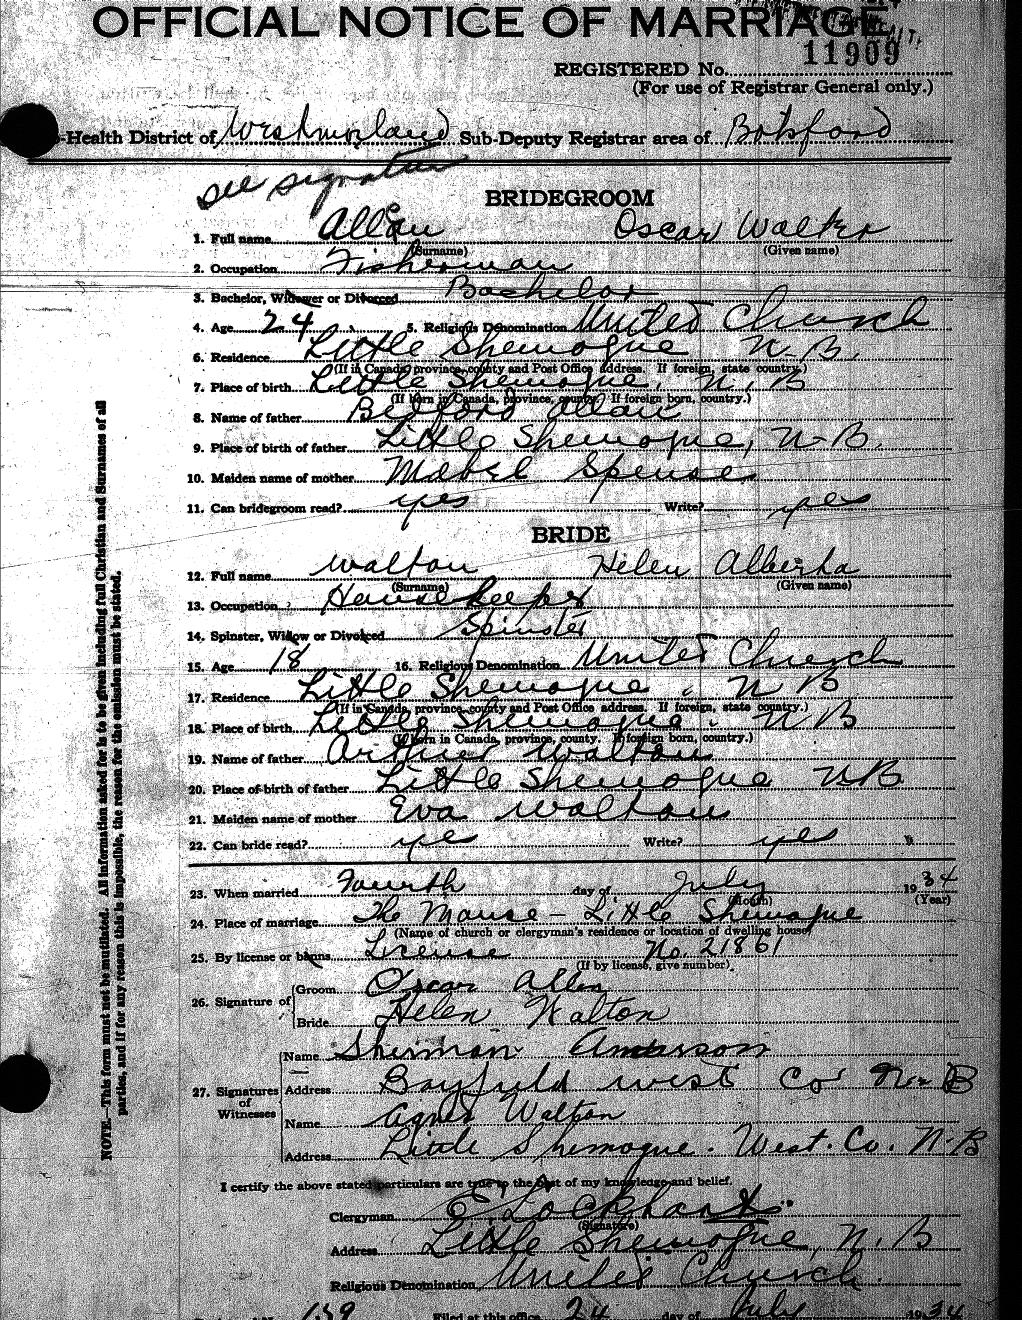 OFFICIAL NOTICE OF MARRIAGE
11909
REGISTERED No.
(For use of Registrar General only.)
-Health District of Westmorland Sub-Deputy Registrar area of Botsford
see signature
BRIDEGROOM
1. Full name Allan e Oscar Walter
(Surname) (Given name)
2. Occupation Fisherman
3. Bachelor, Widower or Divorced Bachelor
4. Age 24 5. Religious Denomination United Church
6. Residence Little Shemogue N.B.
(If in Canada, province, county and Post Office address. If foreign, state country.)
7. Place of birth Little Shemogue, N.B
(If born in Canada, province, county. If foreign born, country.)
8. Name of father Bedford Allan
9. Place of birth of father Little Shemogue, N-B.
10. Maiden name of mother Mabel Spense
11. Can bridegroom read? yes Write? yes
BRIDE
12. Full name Walton Helen Alberta
(Surname) (Given name)
13. Occupation House Keeper
14. Spinster, Widow or Divorced Spinster
15. Age 18 16. Religious Denomination United Church
17. Residence Little Shemogue. N B
(If in Canada, province, county and Post Office address. If foreign, state country.)
18. Place of birth Little Shemogue. N B
(If born in Canada, province, county. If foreign born, country.)
19. Name of father Arthur Walton
20. Place of birth of father Little Shemogue NB
21. Maiden name of mother Eva Walton
22. Can bride read? yes Write? yes
23. When married Fourth day of July 1934
(Month) (Year)
24. Place of marriage The Manse - Little Shemogue
(Name of church or clergyman's residence or location of dwelling house)
25. By license or banns License No. 21861
(If by license, give number)
26. Signature of Groom Oscar Allen
Bride Helen Walton
27. Signatures of Witnesses
Name Sherman Amberson
Address Bayfield West Co N-B
Name Agnes Walton
Address Little Shemogue. West. Co. N-B
I certify the above stated particulars are true to the best of my knowledge and belief.
Clergyman E Lockhart
(Signature)
Address Little Shemogue, N.B
Religious Denomination United Church.
159 Filed at this office 24 day of July 1934
NOTE.—This form must not be mutilated. All information asked for is to be given including full Christian and Surnames of all
parties, and if for any reason this is impossible, the reason for the omission must be stated.